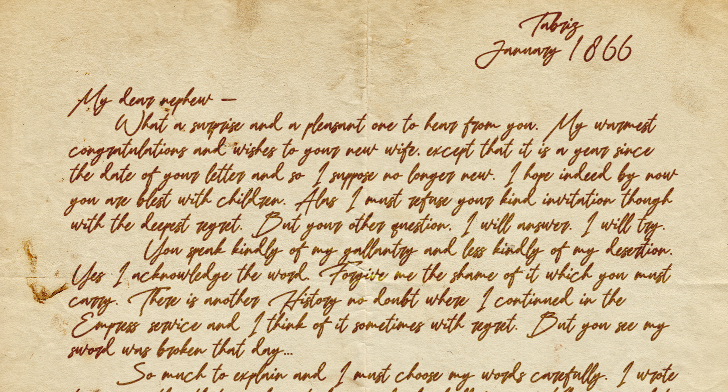 Tabriz
January 1866
My dear nephew —
What a surprise and a pleasant one to hear from you. My warmest
congratulations and wishes to your new wife. except that it is a year since
the date of your letter and so I suppose no longer new. I hope indeed by now
you are blest with children. Alas I must refuse your kind invitation though
with the deepest regret. But your other question, I will answer. I will try.
You speak kindly of my gallantry and less kindly of my desertion.
Yes I acknowledge the word. Forgive me the shame of it which you must
carry. There is another History no doubt where I continued in the
Empress service and I think of it sometimes with regret. But you see my
sword was broken that day...
So much to explain and I must choose my words carefully. I wrote